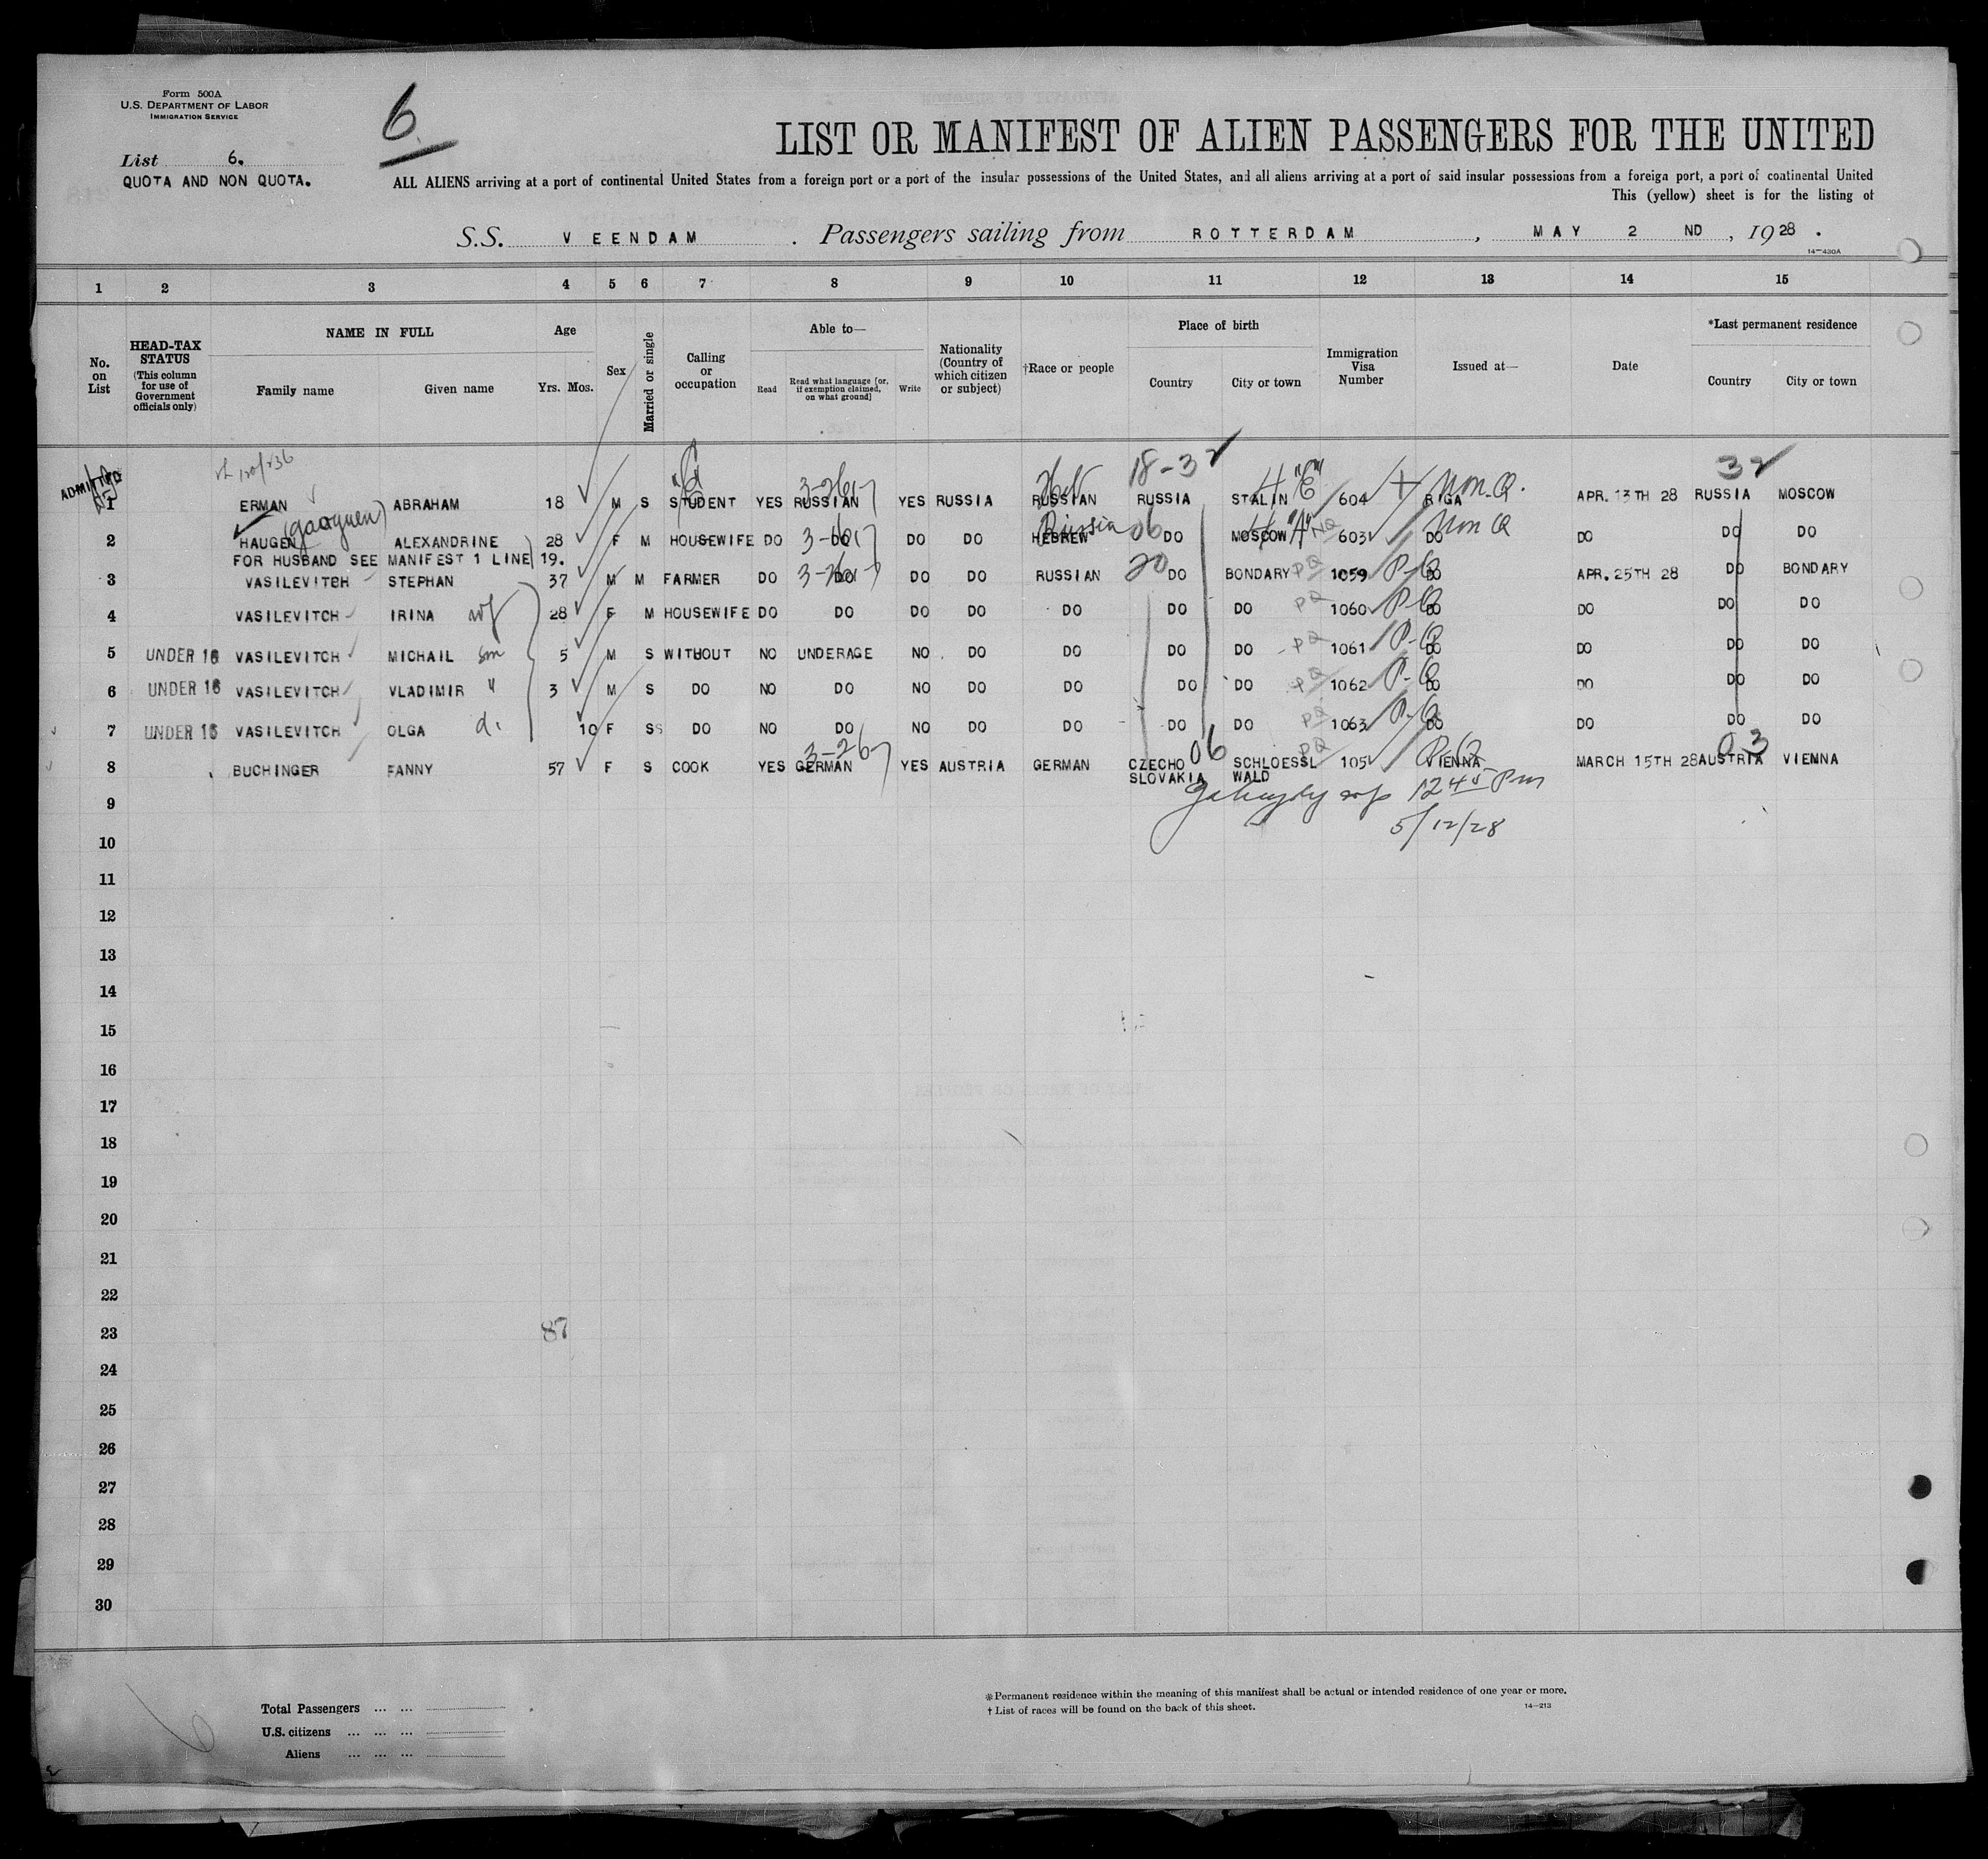 Form 500A
U.S. DEPARTMENT OF LABOR
IMMIGRATION SERVICE
6.
List 6.
QUOTA AND NON QUOTA.
LIST OR MANIFEST OF ALIEN PASSENGERS FOR THE UNITED
ALL ALIENS arriving at a port of continental United States from a foreign port or a port of the insular possessions of the United States, and all aliens arriving at a port of said insular possessions from a foreign port, a port of continental United
This (yellow) sheet is for the listing of
S.S. VEENDAM . Passengers sailing from ROTTERDAM , MAY 2 ND , 1928 .
14—430A
1 2 3 4 5 6 7 8 9 10 11 12 13 14 15
No. on List
HEAD-TAX STATUS (This column for use of Government officials only)
NAME IN FULL
Family name Given name
Age
Yrs. Mos.
Sex
Married or single
Calling or occupation
Able to—
Read Read what language [or, if exemption claimed, on what ground] Write
Nationality (Country of which citizen or subject)
†Race or people
Place of birth
Country City or town
Immigration Visa Number
Issued at—
Date
*Last permanent residence
Country City or town
18-32 32
ADMITTED
1 ERMAN ABRAHAM 18 M S STUDENT YES RUSSIAN YES RUSSIA RUSSIAN Heb RUSSIA STALIN 4 "E" 604 RIGA Non Q. APR. 13TH 28 RUSSIA MOSCOW
2 HAUGEN ALEXANDRINE 28 F M HOUSEWIFE DO DO DO DO HEBREW Russian 06 DO MOSCOW 4 "A" NQ 603 DO Non Q DO DO DO
FOR HUSBAND SEE MANIFEST 1 LINE 19.
3 VASILEVITCH STEPHAN 37 M M FARMER DO DO DO DO RUSSIAN 20 DO BONDARY PQ 1059 P-Q DO APR. 25TH 28 DO BONDARY
4 VASILEVITCH IRINA wf 28 F M HOUSEWIFE DO DO DO DO DO DO DO PQ 1060 P-Q DO DO DO DO
5 UNDER 16 VASILEVITCH MICHAIL son 5 M S WITHOUT NO UNDERAGE NO DO DO DO DO PQ 1061 P-Q DO DO DO DO
6 UNDER 16 VASILEVITCH VLADIMIR " 3 M S DO NO DO NO DO DO DO DO PQ 1062 P-Q DO DO DO DO
7 UNDER 16 VASILEVITCH OLGA d. 10 F S DO NO DO NO DO DO DO DO PQ 1063 P-Q DO DO DO DO
8 BUCHINGER FANNY 57 F S COOK YES GERMAN YES AUSTRIA GERMAN CZECHO SLOVAKIA 06 SCHLOESSL WALD PQ 105 VIENNA P-Q MARCH 15TH 28 AUSTRIA 03 VIENNA
9 1245 Pm
5/12/28
10
11
12
13
14
15
16
17
18
19
20
21
22
23 87
24
25
26
27
28
29
30
Total Passengers ... ...
U.S. citizens ... ... ...
Aliens ... ... ...
6
*Permanent residence within the meaning of this manifest shall be actual or intended residence of one year or more.
† List of races will be found on the back of this sheet.
14—213